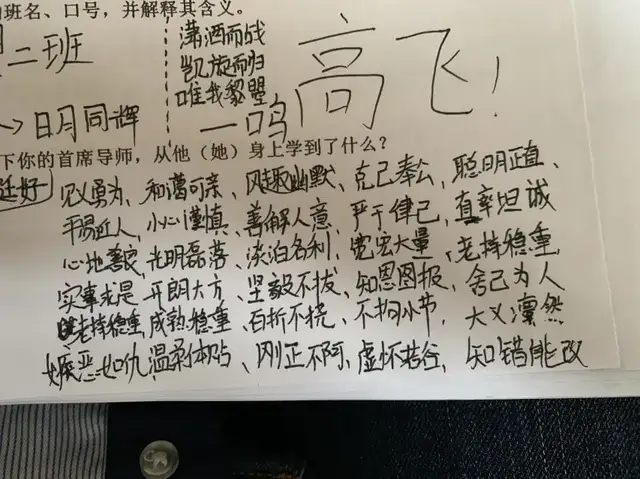 班名、口号，并解释其含义。
二班
潇洒而战
凯旋而归
唯我黎曌
一鸣高飞！
→日月同辉
下你的首席导师，从他（她）身上学到了什么？
挺好
见义勇为、和蔼可亲、风趣幽默、克己奉公、聪明正直、
平易近人、小心谨慎、善解人意、严于律己、直率坦诚
心地善良、光明磊落、淡泊名利、宽宏大量、老持稳重
实事求是、开朗大方、坚毅不拔、知恩图报、舍己为人
老持稳重、成熟稳重、百折不挠、不拘小节、大义凛然
嫉恶如仇、温柔体贴、刚正不阿、虚怀若谷、知错能改